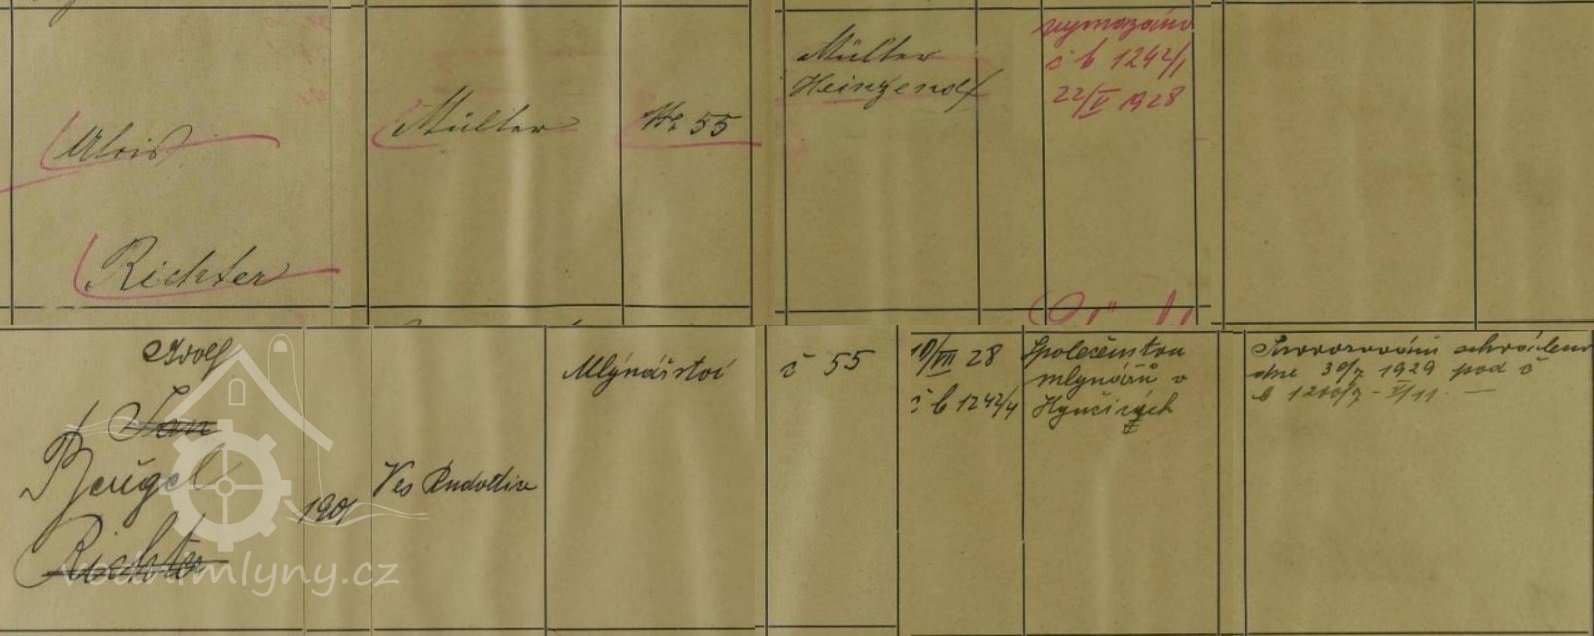 Alois
Richter
Müller
Nr 55
Müller
Heinzendf
vymazáno
č b 1242/1
22/V 1928
Adolf
Jan
Beigel
Richter
1901
Ves
Mlýnářství
č 55
10/VII 28
č b 1242/4
Společenstvo
mlynářů v
Hynčicích
Provozování
dne 30/7 1929 pod č
vodnimlyny.cz